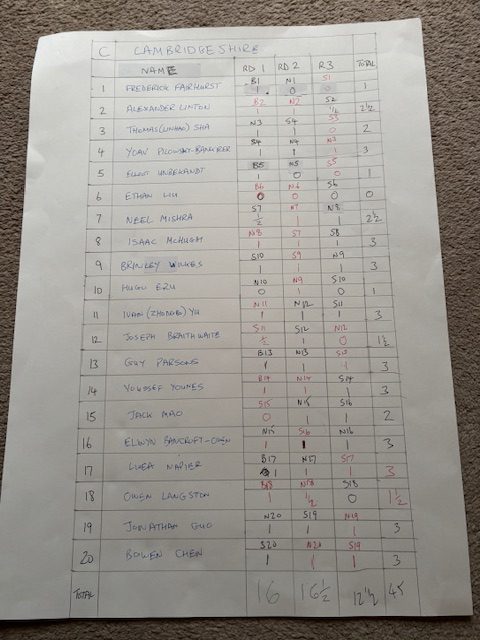 C CAMBRIDGESHIRE
NAME RD 1 RD 2 R3 TOTAL
B1 N1 S1
1 FREDERICK FAIRHURST 1 0 0 1
B2 N2 S2
2 ALEXANDER LINTON 1 1 1/2 2 1/2
N3 S4 S3
3 THOMAS (LINHAO) SHA 1 1 0 2
B4 N4 N3
4 YOAV 1 1 1 3
B5 N5 S5
5 ELLIOT UNBEKANDT 1 0 0 1
B6 N6 S6
6 ETHAN LIU 0 0 0 0
S7 N7 N8
7 NEEL MISHRA 1/2 1 1 2 1/2
N8 S7 S8
8 ISAAC McHUGH 1 1 1 3
S10 S9 N9
9 BRINLEY WILKES 1 1 1 3
N10 N9 S10
10 HUGO ERU 0 1 0 1
N11 N12 S11
11 IVAN (ZHONGBO) YU 1 1 1 3
S11 S12 N12
12 JOSEPH BRAITHWAITE 1/2 1 0 1 1/2
B13 N13
13 GUY PARSONS 1 1 1 3
B14 N14 S14
14 YOUSSEF YOUNES 1 1 1 3
S15 N15 S16
15 JACK MAO 0 1 1 2
N15 S16 N16
16 ELWYN BANCROFT-CHEN 1 1 1 3
B17 N17 S17
17 LUCA NAPIER 1 1 1 3
B18 N18 S18
18 OWEN LANGSTON 1 1/2 0 1 1/2
N20 S19 N19
19 JONATHAN GUO 1 1 1 3
S20 N20 S19
20 BOWEN CHEN 1 1 1 3
TOTAL 16 16 1/2 12 1/2 45